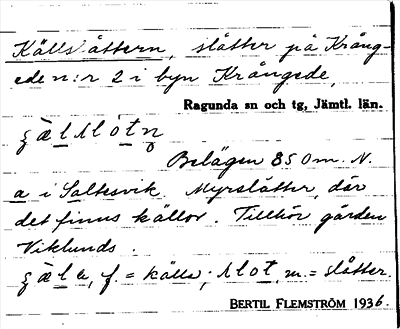 Källslåttern, slåtter på Krång-
ede n:r 2 i byn Krångede,
Ragunda sn och tg, Jämtl. län.
Belägen 850 m. N.
a i Saltesvik. Myrslåtter, där
det finns källor. Tillhör gården
Viklunds.
f. = källa; slot, m. = slåtter.
BERTIL FLEMSTRÖM 1936.